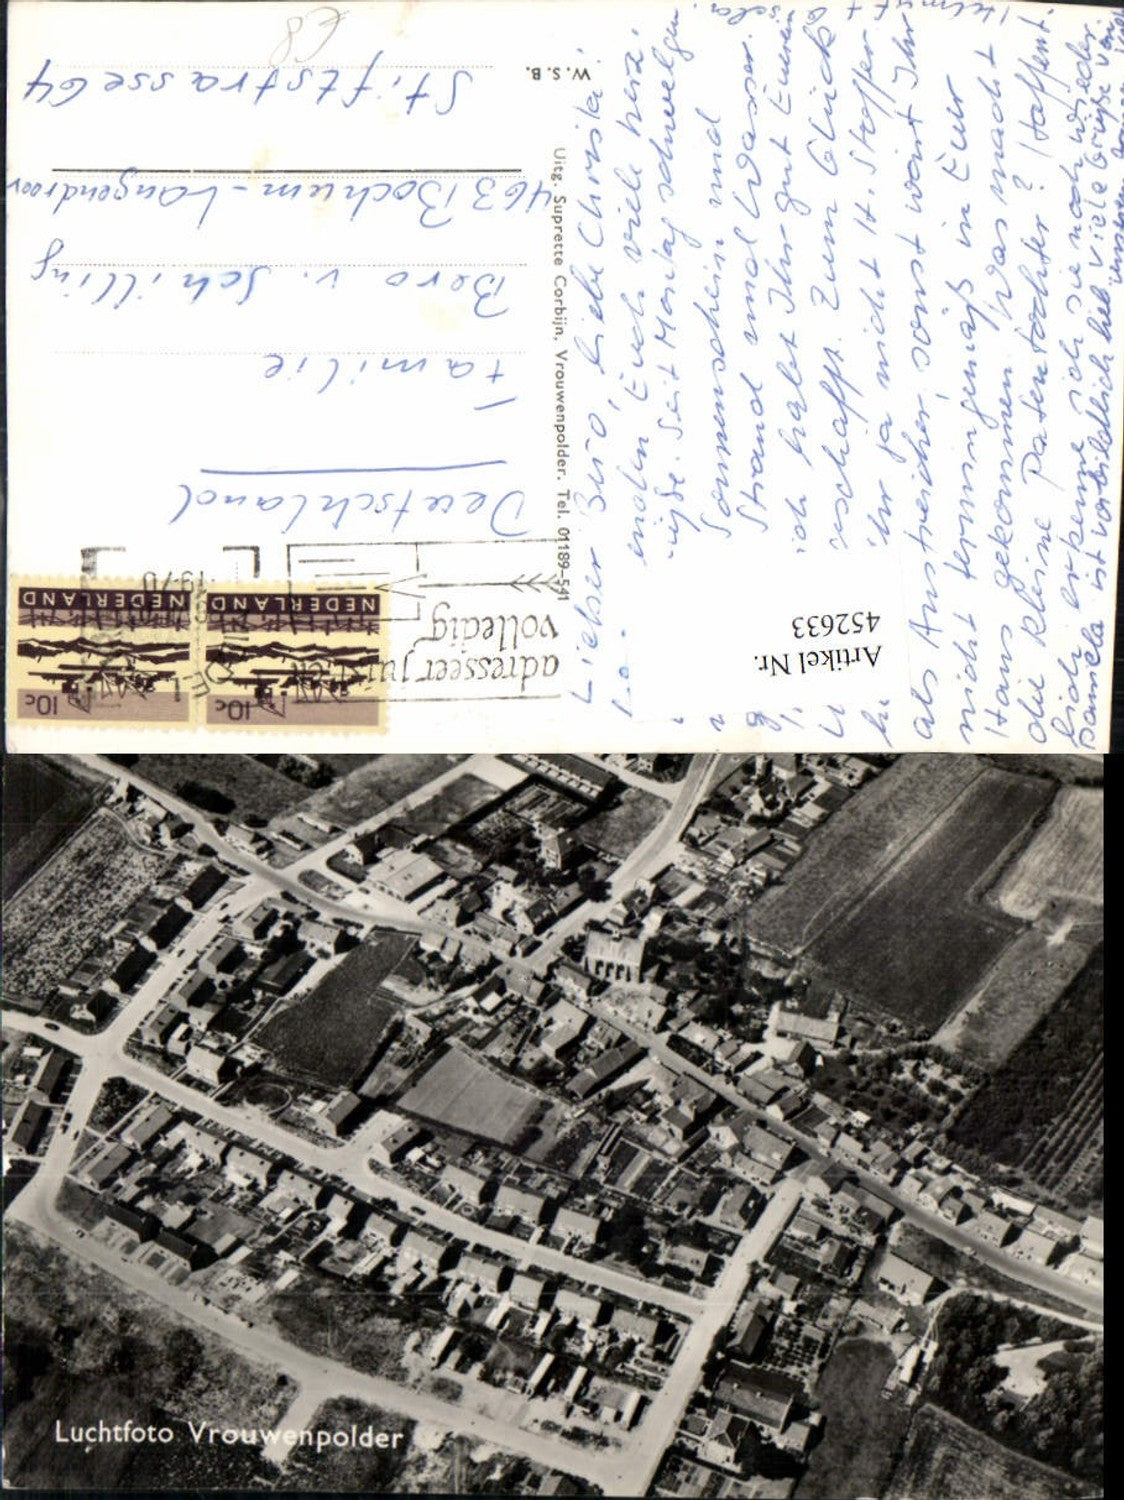 Lieber Bero, liebe Christa!
senden Euch viele herz.
Grüße. Seit Montag schwelgen
Sonnenschein und
Strand und Wasser.
ich habt Ihr gut Euren
geschafft. Zum Glück
Ihr ja nicht H. Stoffer
als Anstreicher, sonst wärt Ihr
nicht termingemäß in Eur
Haus gekommen. Was macht
die kleine Patentochter? Hoffent-
lich erkenne ich sie noch wieder.
Daniela ist vorbildlich lieb viele Grüße von
Helmut +
Artikel Nr.
452633
W. S. B.
Uitg. Suprette Corbijn, Vrouwenpolder. Tel. 01189-541
adresseer juist en
volledig
1970
NEDERLAND
10c
NEDERLAND
10c
Deutschland
Familie
Bero v. Schilling
463 Bochum - Langendreer
Stiftstrasse 64
€8
Luchtfoto Vrouwenpolder